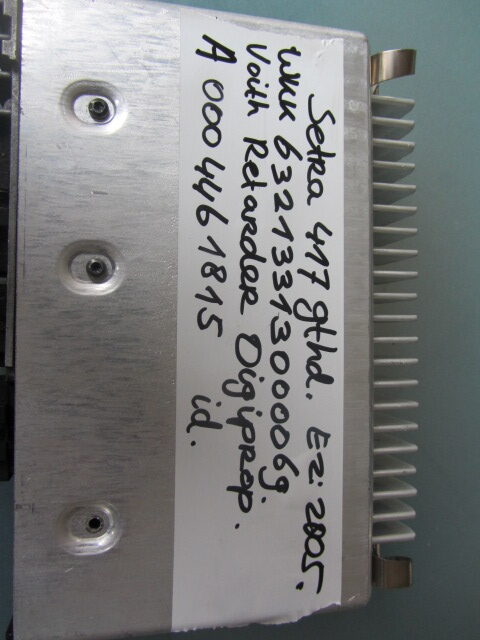 Setra 417 gthd. Ez: 2005.
WKK 63213313000069
Voith Retarder Digiprop.
A 000 446 1815 id.